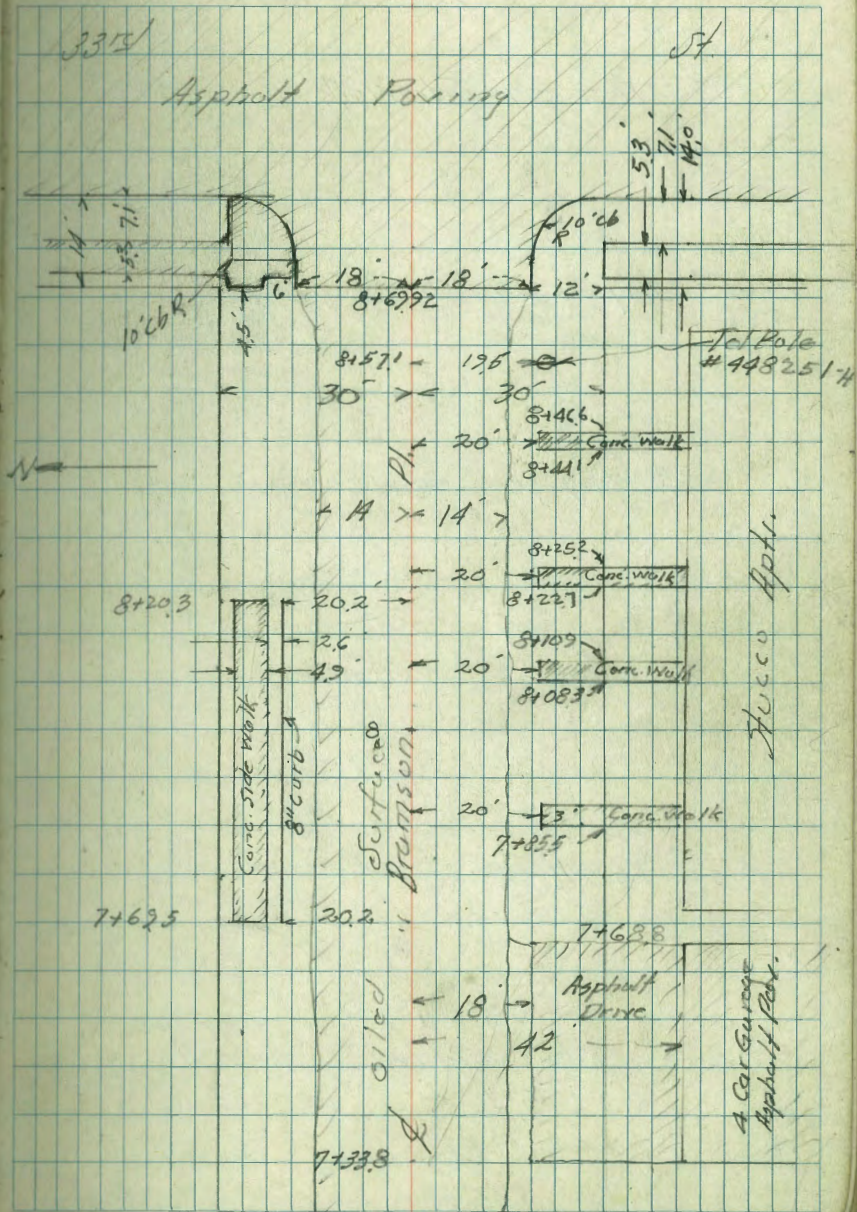 33rd St.
Asphalt Paving
5.3'
7.1'
14.0'
14'
7.1'
5.3
10' cb R
10' cb R
6'
18' 18' 12'
8+69.92
4.5'
Tel Pole
# 448251-H
8+57.1 19.5
30' 30'
8+46.6
20' Conc. Walk
8+44.1
N
Pl.
14 14'
8+25.2
20' Conc. Walk
8+22.7
8+20.3 20.2'
2.6
8+10.9
4.9' 20' Conc. Walk
8+08.3
Stucco Apts.
Conc. Side Walk
8" curb
oiled Surface
Bramson
20' 3' Conc. Walk
7+85.5
7+69.5 20.2
7+68.8
Asphalt
Drive
18'
42'
4 Car Garage
Asphalt Pav.
7+33.8